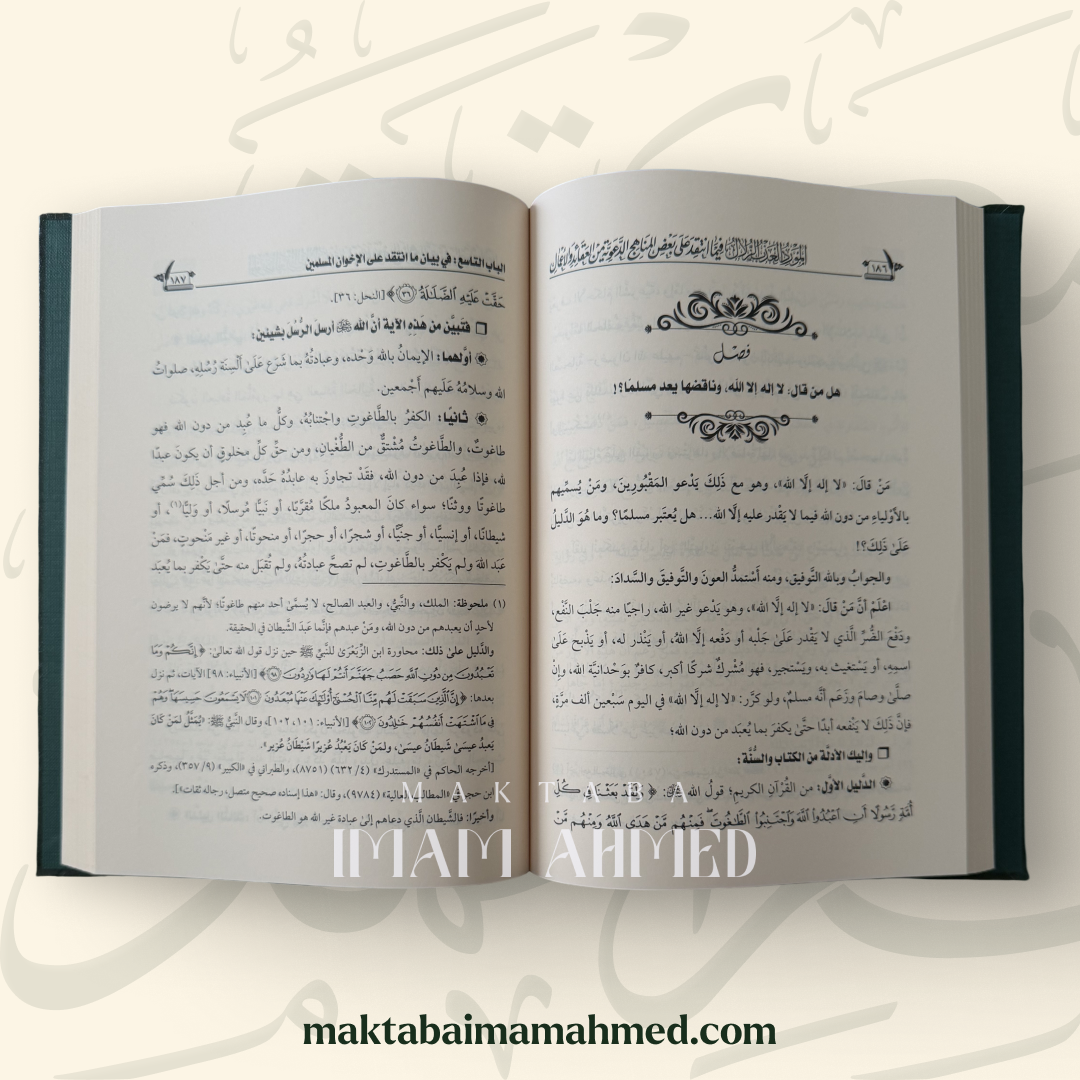 المورد العذب الزلال فيما انتقد على بعض المناهج الدعوية من العقائد والأعمال
١٨٦
فصل
هل من قال: لا إله إلا الله، وناقضها يعد مسلمًا؟!
مَنْ قالَ: «لا إله إلَّا الله»، وهو مع ذَلِكَ يَدْعو المَقْبُورِينَ، ومَنْ يُسمِّيهم
بالأوْلياءِ من دون الله فيما لا يَقْدر عليه إلَّا الله... هل يُعتَبر مسلمًا؟ وما هُوَ الدَّليلُ
عَلَىٰ ذَلِكَ؟!
والجوابُ وبالله التَّوفيق، ومنه أَسْتمدُّ العونَ والتَّوفيقَ والسَّدادَ:
اعْلَمْ أنَّ مَنْ قالَ: «لا إله إلَّا الله»، وهو يَدْعو غير الله، راجيًا منه جَلْبَ النَّفْع،
ودَفْعَ الضُّرِّ الَّذي لا يَقْدر عَلَىٰ جَلْبه أو دَفْعه إلَّا اللهُ، أو يَنْذر له، أو يَذْبح عَلَىٰ
اسمِهِ، أو يَسْتغيث به، ويَسْتجير، فهو مُشْركٌ شركًا أكبر، كافرٌ بوَحْدانيَّة الله، وإنْ
صلَّىٰ وصامَ وزَعَم أنَّه مسلمٌ، ولو كرَّر: «لا إله إلَّا الله» في اليوم سَبْعين ألف مرَّةٍ،
فإنَّ ذَلِكَ لا يَنْفعه أبدًا حتَّىٰ يكفرَ بما يُعبَد من دون الله؛
❒ وإليك الأدلَّة من الكتاب والسُّنَّة:
◉ الدَّليل الأول: من القُرْآنِ الكريمِ؛ قولُ اللهِ ﷻ: ﴿وَلَقَدْ بَعَثْنَا فِي كُلِّ
أُمَّةٍ رَّسُولًا أَنِ ٱعْبُدُوا۟ ٱللَّهَ وَٱجْتَنِبُوا۟ ٱلطَّٰغُوتَ ۖ فَمِنْهُم مَّنْ هَدَى ٱللَّهُ وَمِنْهُم مَّنْ
الباب التاسع: في بيان ما انتقد على الإخوان المسلمين
١٨٧
حَقَّتْ عَلَيْهِ ٱلضَّلَٰلَةُ ﴿٣٦﴾﴾ [النحل: ٣٦].
❒ فتَبيَّن من هَذِهِ الآية أنَّ الله ﷻ أرسلَ الرُّسُلَ بشيئين:
◉ أوَّلهما: الإيمانُ بالله وَحْده، وعبادتُهُ بما شَرَع عَلَىٰ أَلْسِنَة رُسُلِهِ، صلواتُ
الله وسلامُهُ عَلَيهم أَجْمعين.
◉ ثانيًا: الكفرُ بالطَّاغوتِ واجْتنابُهُ، وكلُّ ما عُبِدَ من دون الله فهو
طاغوتٌ، والطَّاغوتُ مُشْتقٌّ من الطُّغْيانِ، ومن حقِّ كلِّ مخلوقٍ أن يكونَ عبدًا
لله، فإذا عُبِدَ من دون الله، فقَدْ تجاوزَ به عابدُهُ حَدَّه، ومن أجل ذَلِكَ سُمِّي
طاغوتًا ووثنًا؛ سواء كانَ المعبودُ ملكًا مُقرَّبًا، أو نَبيًّا مُرسلًا، أو وَليًّا(١)، أو
شيطانًا، أو إنسيًّا، أو جنِّيًّا، أو شجرًا، أو حجرًا، أو منحوتًا، أو غير مَنْحوتٍ، فمَنْ
عَبدَ اللهَ ولم يَكْفر بالطَّاغوتِ، لم تصحَّ عبادتُهُ، ولم تُقْبَل منه حتَّىٰ يَكْفر بما يُعبَد
(١) ملحوظة: الملك، والنَّبيُّ، والعبد الصالح، لا يُسمَّىٰ أحد منهم طاغوتًا؛ لأنَّهم لا يرضون
لأحدٍ أن يعبدهم من دون الله، ومَنْ عبدهم فإنَّما عَبدَ الشَّيطان في الحقيقة.
والدَّليل علىٰ ذلك: محاورة ابن الزِّبَعْرَىٰ للنَّبيِّ ﷺ حين نزل قول الله تعالىٰ: ﴿إِنَّكُمْ وَمَا
تَعْبُدُونَ مِن دُونِ ٱللَّهِ حَصَبُ جَهَنَّمَ أَنتُمْ لَهَا وَٰرِدُونَ ﴿٩٨﴾﴾ [الأنبياء: ٩٨] الآيات، ثم نزل
بعدها: ﴿إِنَّ ٱلَّذِينَ سَبَقَتْ لَهُم مِّنَّا ٱلْحُسْنَىٰٓ أُو۟لَٰٓئِكَ عَنْهَا مُبْعَدُونَ ﴿١٠١﴾ لَا يَسْمَعُونَ حَسِيسَهَا ۖ وَهُمْ
فِى مَا ٱشْتَهَتْ أَنفُسُهُمْ خَٰلِدُونَ ﴿١٠٢﴾﴾ [الأنبياء: ١٠١، ١٠٢]، وقال النَّبيُّ ﷺ: «يُمَثَّلُ لمَنْ كَانَ
يَعبدُ عيسىٰ شَيطانُ عيسىٰ، ولمَنْ كَانَ يَعْبُدُ عُزيرًا شَيْطَانُ عُزير».
[أخرجه الحاكم في «المستدرك» (٤/ ٦٣٢) (٨٧٥١)، والطبراني في «الكبير» (٩/ ٣٥٧)، وذكره
ابن حجر في «المطالب العالية» (٩٧٨٤)، وقال: «هذا إسناده صحيح متصل، رجاله ثقات»].
وأخيرًا: فالشَّيطان الَّذي دعاهم إلىٰ عبادة غير الله هو الطاغوت.
MAKTABA
IMAM AHMED
maktabaimamahmed.com